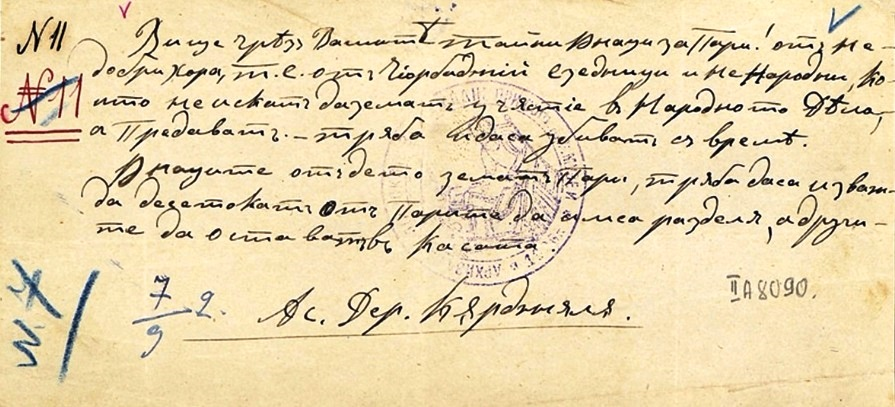 N 11
№ 11
Вище чрѣзъ Вашитѣ тайни внаци за Пари! отъ не-
добри хора, т. е. отъ Чіорбаджій езедници и не Народни, ко-
ито не искатъ да зематъ участіе въ Народното Дѣло,
а Предаватъ. – трѣба и да са убиватъ съ времѣ.
внаците отъ дето зематъ Пари, трѣба да са изваж-
да десетокатъ отъ Парите да имса разделя, а други-
те да оставатъ въ Касата.
Ас. Дер. Кърджяля.
N. 7
7/9 2.
II A 8090.